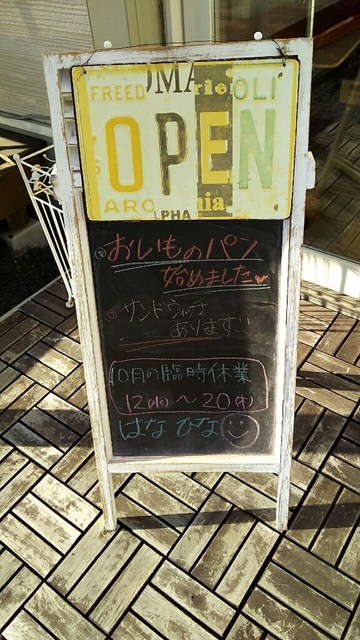 FREED OMA rle OLI
OPEN
CARO LPHA nia
おいものパン
始めました♥
サンドウィッチ
あります!!
10月の臨時休業
12(水)〜20(木)
はな ひな